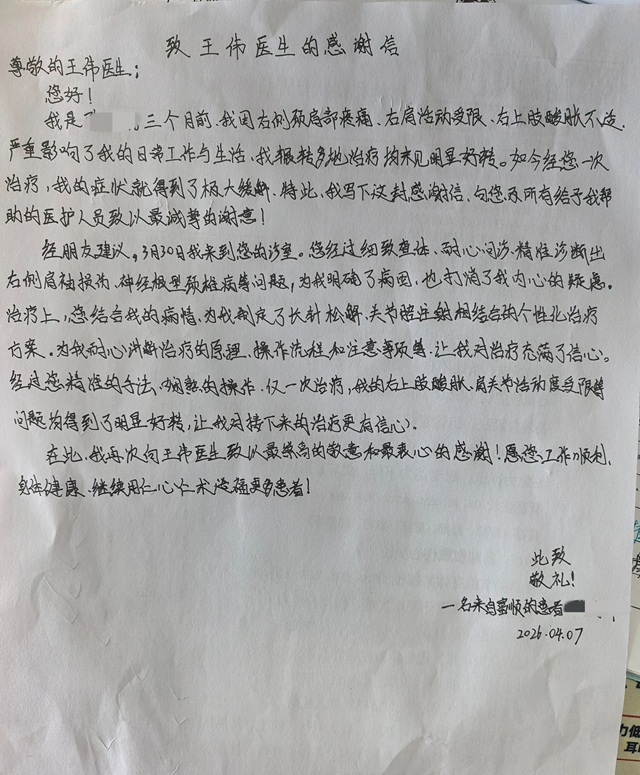 致王伟医生的感谢信
尊敬的王伟医生：
您好！
我是 三个月前、我因右侧颈肩部疼痛、右肩活动受限、右上肢酸胀不适、
严重影响了我的日常工作与生活、我辗转多地治疗均未见明显好转。如今经您一次
治疗，我的症状就得到了极大缓解、特此、我写下这封感谢信、向您及所有给予我帮
助的医护人员致以最诚挚的谢意！
经朋友建议，3月30日我来到您的诊室。您经过细致查体、耐心问诊、精准诊断出
右侧肩袖损伤、神经根型颈椎病等问题，为我明确了病因，也打消了我内心的疑虑。
治疗上，您结合我的病情、为我制定了长针松解、关节腔注射相结合的个性化治疗
方案。为我耐心讲解治疗的原理、操作流程和注意事项等、让我对治疗充满了信心。
经过您精准的手法、娴熟的操作、仅一次治疗，我的右上肢酸胀、肩关节活动度受限等
问题均得到了明显好转，让我对接下来的治疗更有信心。
在此、我再次向王伟医生致以最崇高的敬意和最衷心的感谢！愿您工作顺利、
身体健康、继续用仁心仁术造福更多患者！
此致
敬礼！
一名来自富顺的患者
2026.04.07
力低
耳